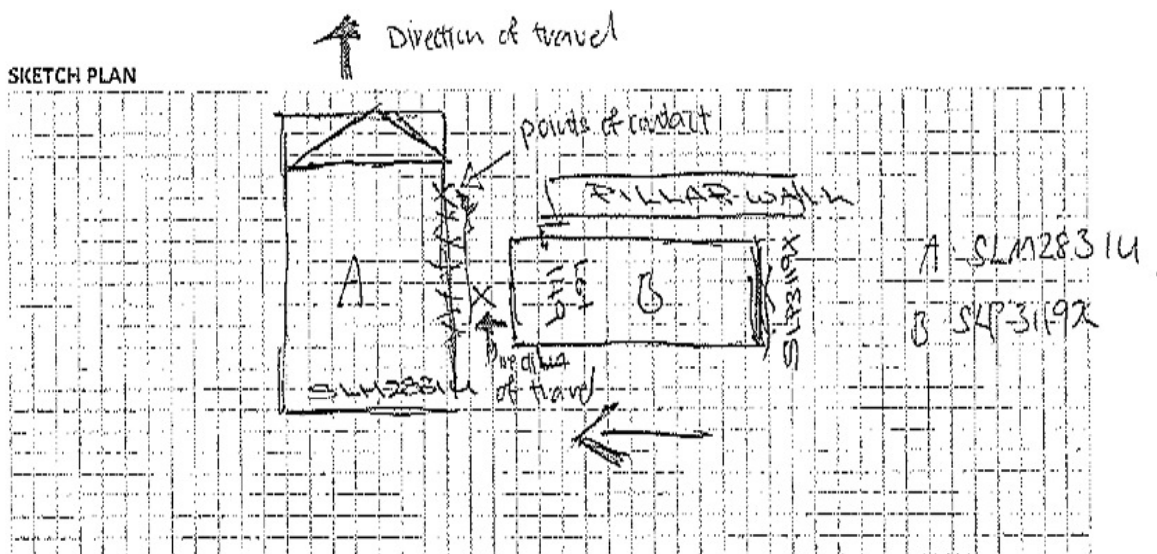 Direction of travel
SKETCH PLAN
points of contact
PILLAR WALL
A
B
SLP3119X
A SLM2831U
B SLP3119X
X
of travel
SLM2831U